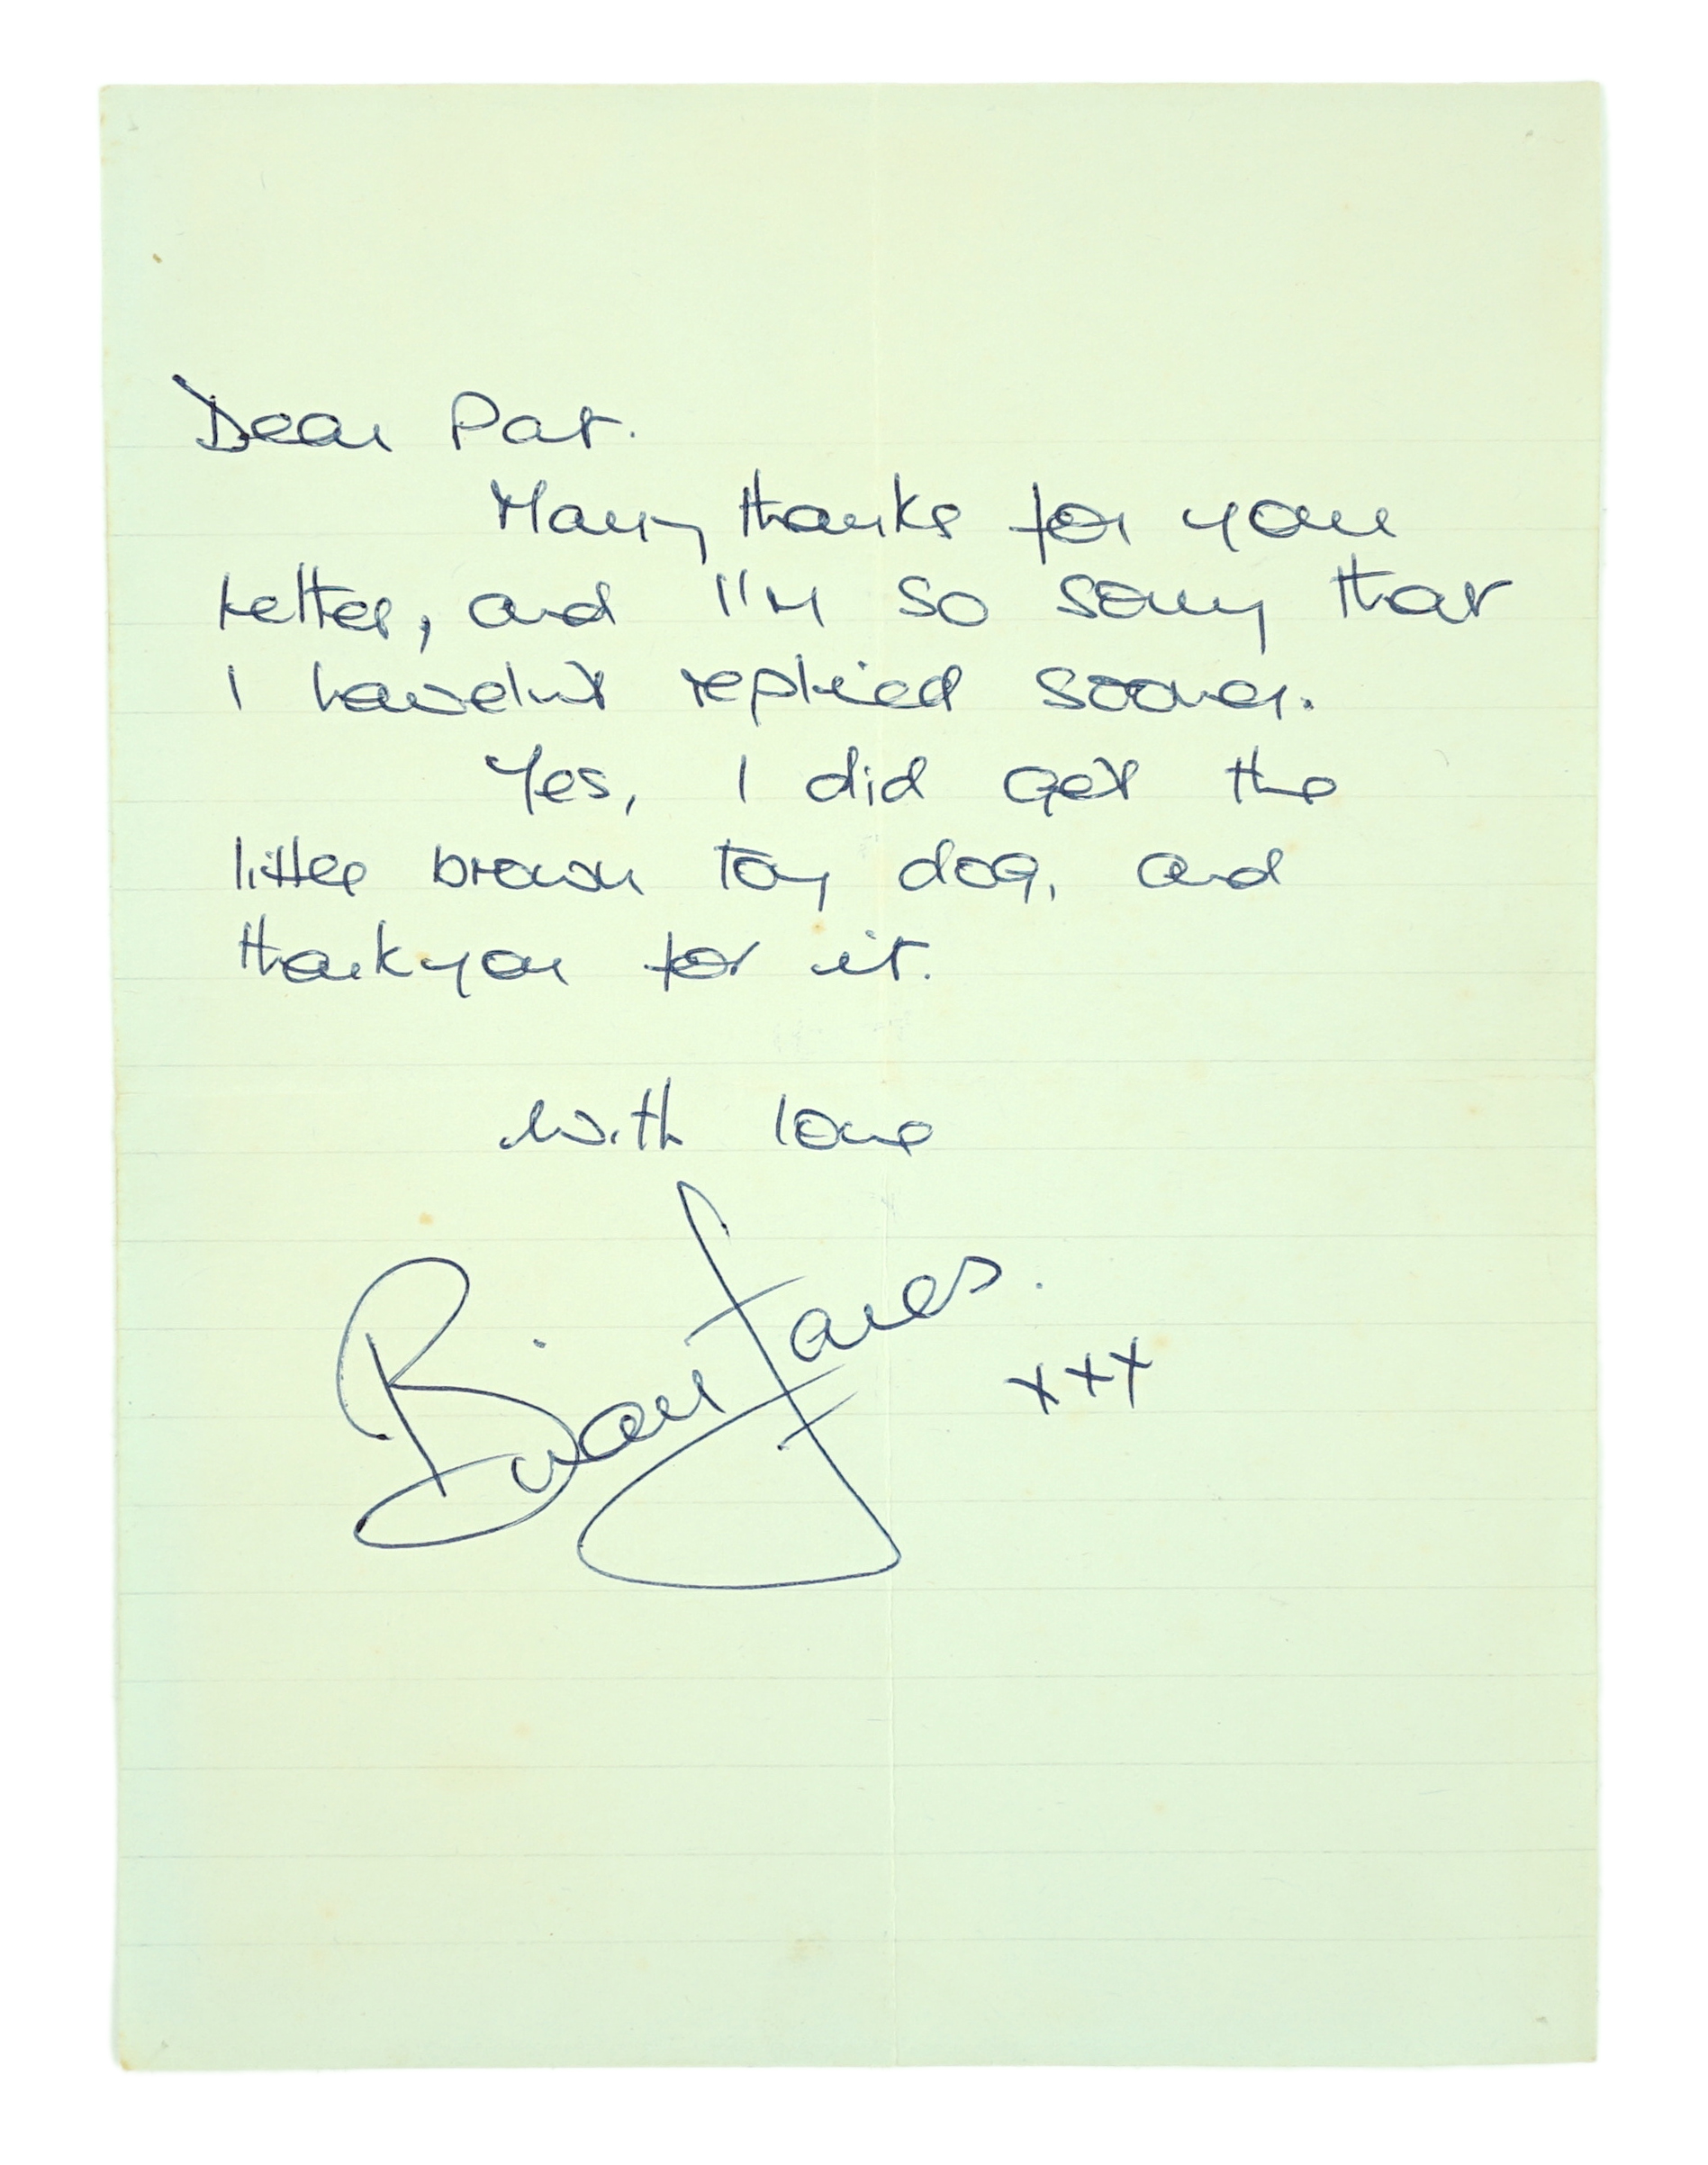 Dear Pat.
Many thanks for your
letter, and I'm so sorry that
I haven't replied sooner.
Yes, I did get the
little brown toy dog, and
thankyou for it.
with love
Brian Jones.
xxx